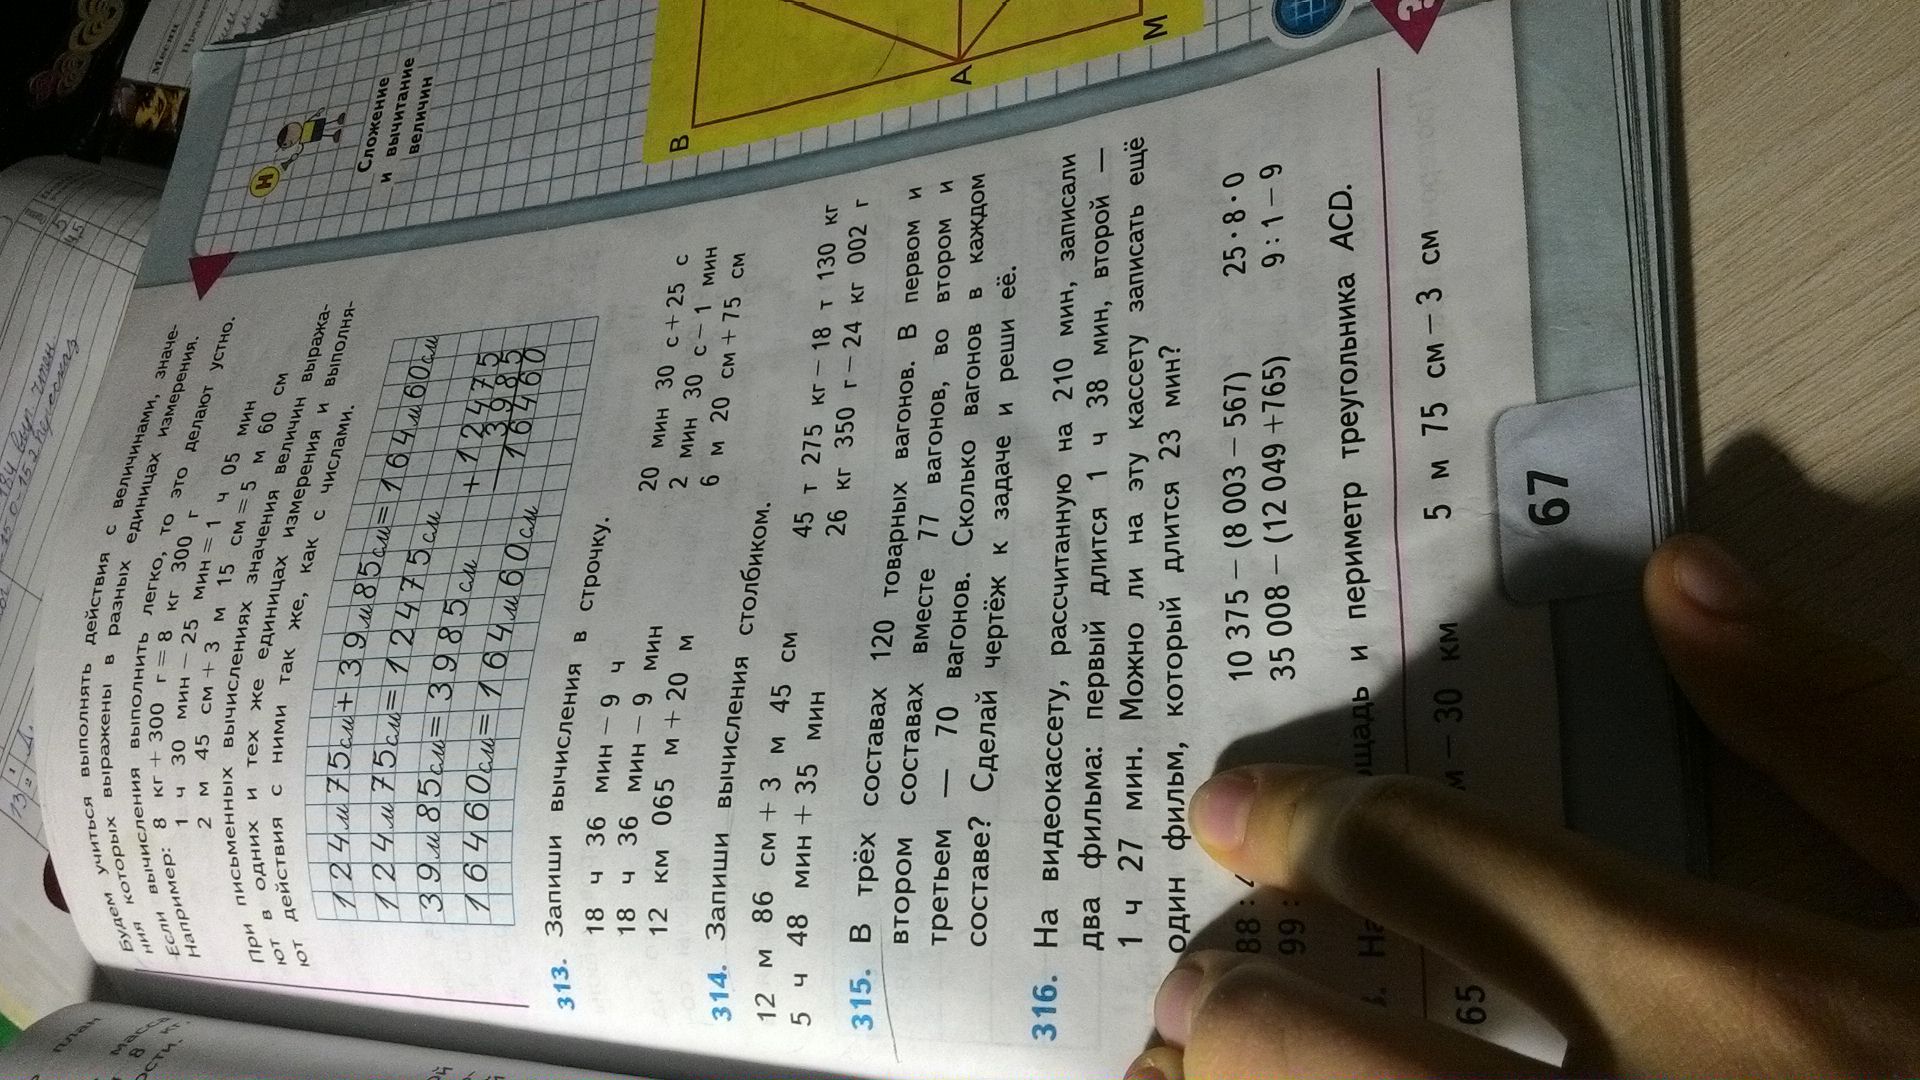 Будем учиться выполнять действия с величинами, значе-
ния которых выражены в разных единицах измерения.
Если вычисления выполнить легко, то это делают устно.
Например: 8 кг + 300 г = 8 кг 300 г
1 ч 30 мин − 25 мин = 1 ч 05 мин
2 м 45 см + 3 м 15 см = 5 м 60 см
При письменных вычислениях значения величин выража-
ют в одних и тех же единицах измерения и выполня-
ют действия с ними так же, как с числами.
124м75см+39м85см=164м60см
124м75см=12475см
39м85см=3985см
16460см=164м60см
+12475
3985
16460
Н
Сложение
и вычитание
величин
313. Запиши вычисления в строчку.
18 ч 36 мин − 9 ч
18 ч 36 мин − 9 мин
12 км 065 м + 20 м
20 мин 30 с + 25 с
2 мин 30 с − 1 мин
6 м 20 см + 75 см
314. Запиши вычисления столбиком.
12 м 86 см + 3 м 45 см
5 ч 48 мин + 35 мин
45 т 275 кг − 18 т 130 кг
26 кг 350 г − 24 кг 002 г
315. В трёх составах 120 товарных вагонов. В первом и
втором составах вместе 77 вагонов, во втором и
третьем — 70 вагонов. Сколько вагонов в каждом
составе? Сделай чертёж к задаче и реши её.
316. На видеокассету, рассчитанную на 210 мин, записали
два фильма: первый длится 1 ч 38 мин, второй —
1 ч 27 мин. Можно ли на эту кассету записать ещё
один фильм, который длится 23 мин?
88 :
99 :
10 375 − (8 003 − 567)
35 008 − (12 049 + 765)
25 · 8 · 0
9 : 1 − 9
и периметр треугольника ACD.
B
A
M
65
м − 30 км
5 м 75 см − 3 см
67
план
масса
8